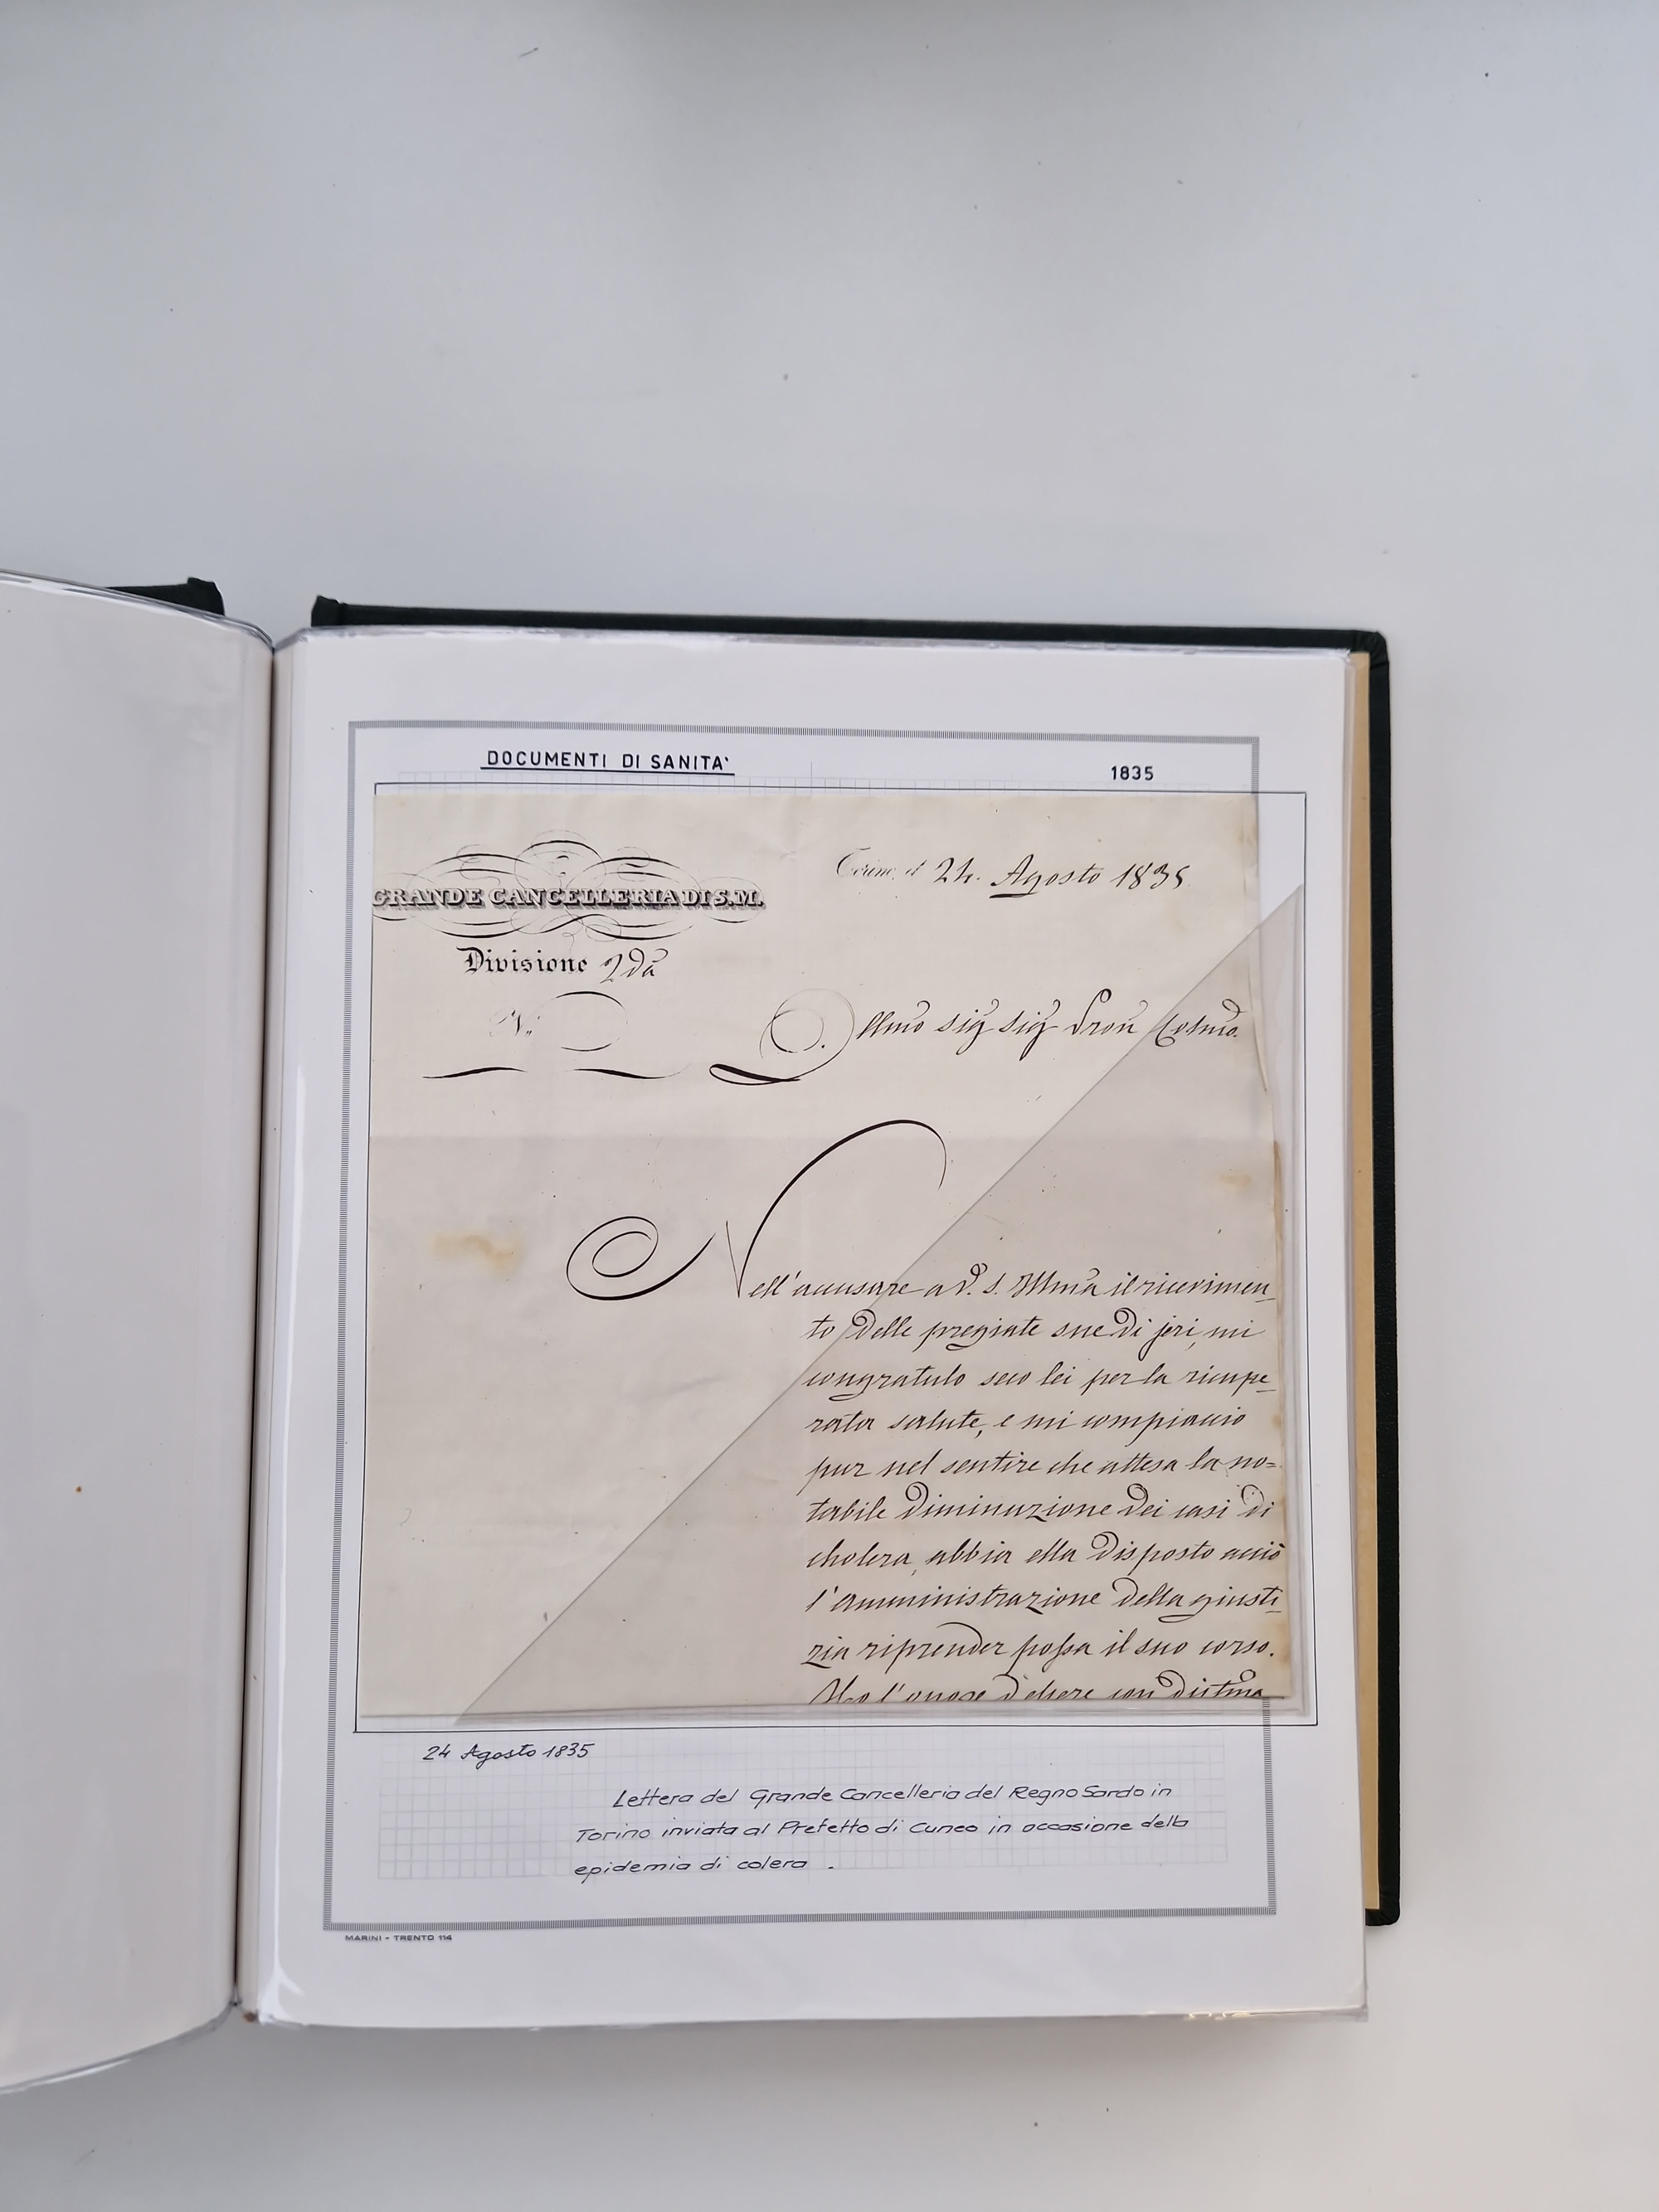 DOCUMENTI DI SANITA'
1835
Torino, il 24. Agosto 1835
GRANDE CANCELLERIA DI S.M.
Divisione 2da
N.
Illmo sig sig Pron Colmo.
Nell'accusare a V. S. Illma il ricevimen_
to delle pregiate sue di jeri, mi
congratulo seco lei per la ricupe_
rata salute, e mi compiaccio
pur nel sentire che attesa la no=
tabile diminuzione dei casi di
cholera, abbia ella disposto acciò
l'amministrazione della giusti_
zia riprender possa il suo corso.
Ho l'onore d'essere con distina
24 Agosto 1835
Lettera del Grande Cancelleria del Regno Sardo in
Torino inviata al Prefetto di Cuneo in occasione della
epidemia di colera .
MARINI - TRENTO 114